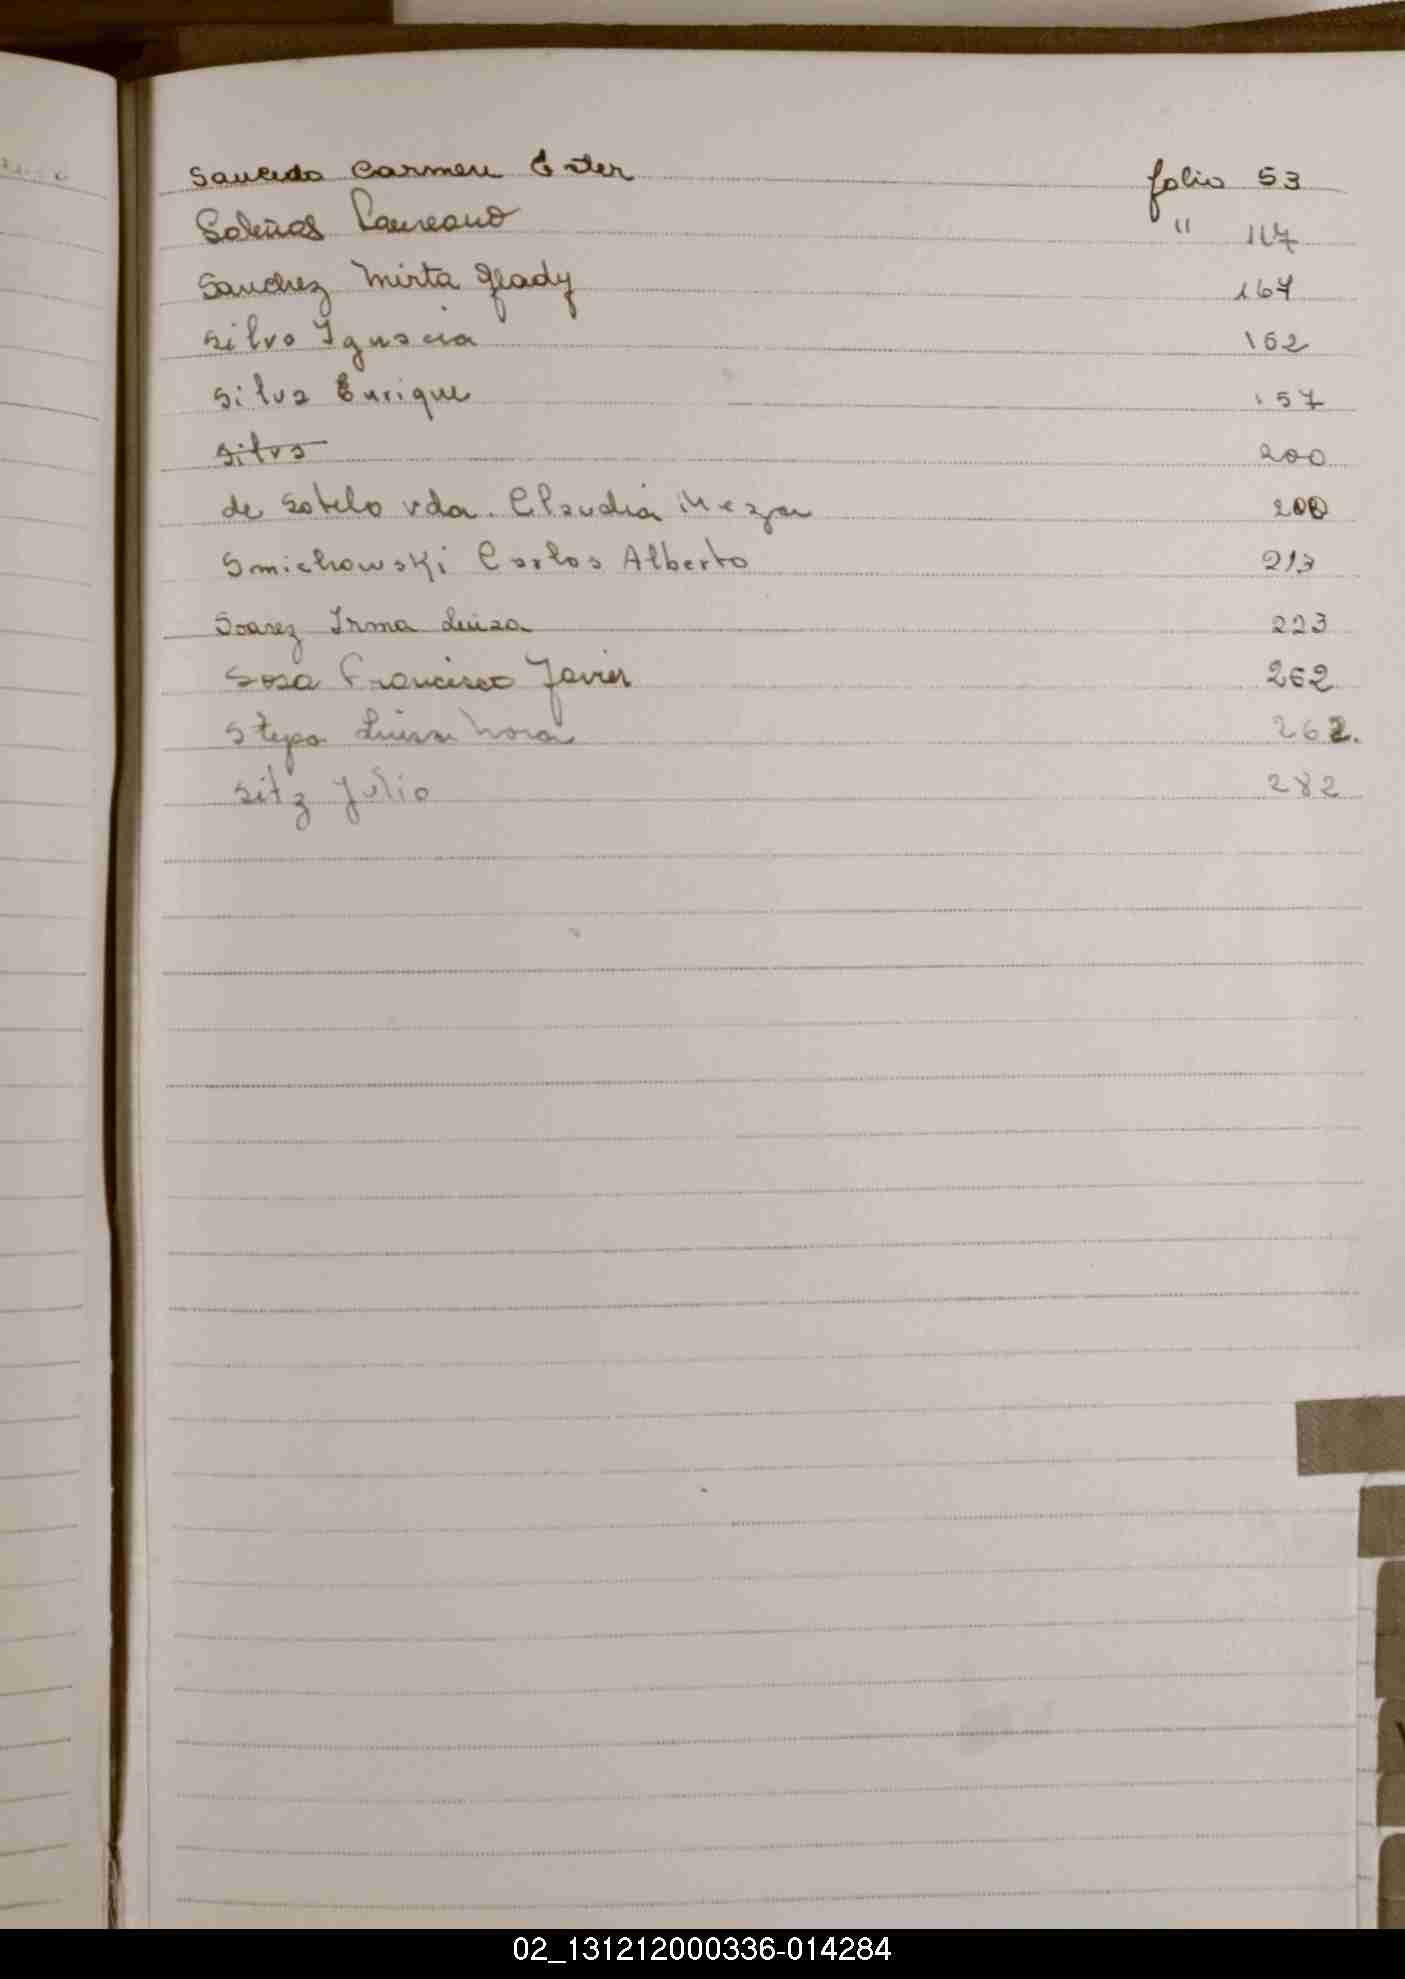 Saucedo Carmen Ester folio 53
Salinas Laureano " 117
Sanchez Mirta Glady 167
Silva Ignacia 162
Silva Enrique 157
Silva 200
de Sotelo vda. Claudia Meza 200
Smichowski Carlos Alberto 213
Soarez Irma Luisa 223
Sosa Francisco Javier 262
Stepa Luisa Nora 262.
Sitz Julio 282
02_131212000336-014284